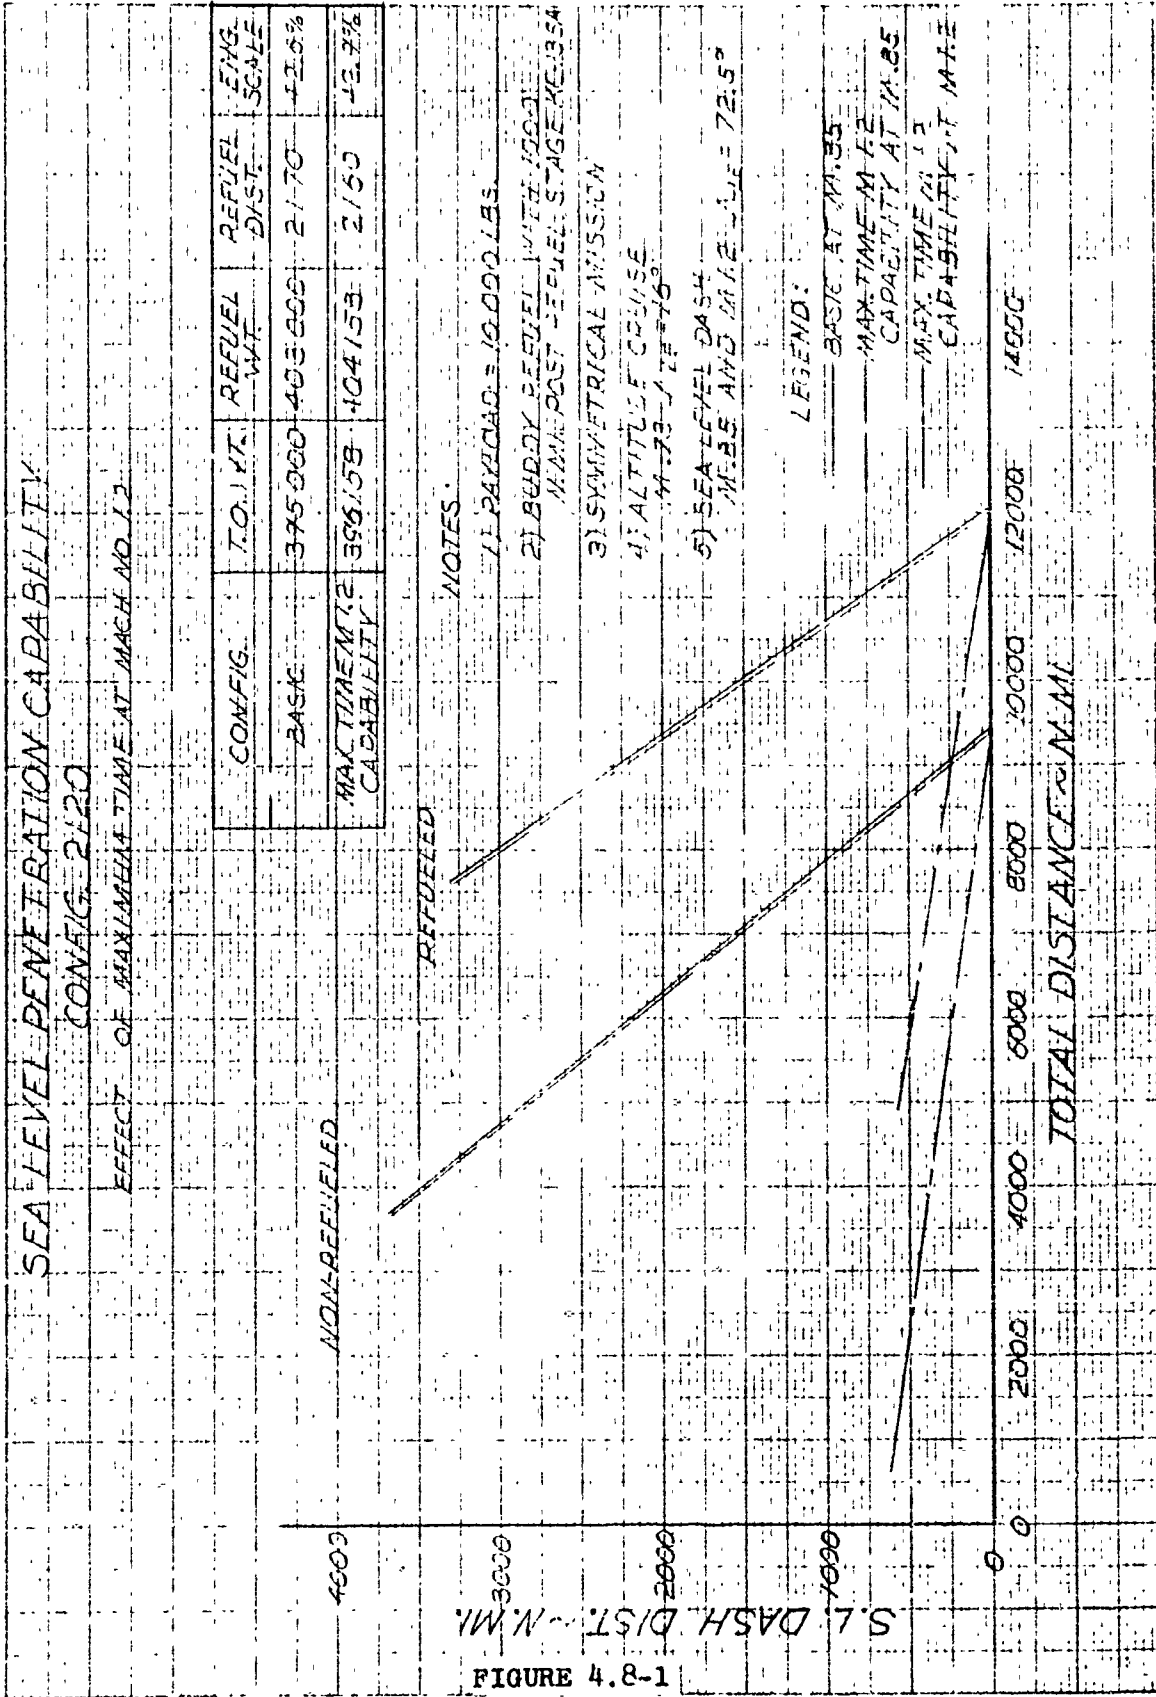 SEA LEVEL PENETRATION CAPABILITY
CONFIG. 2120
EFFECT OF MAXIMUM TIME AT MACH NO. 1.2
CONFIG. T.O. WT. REFUEL WT. REFUEL DIST. ENG. SCALE
BASIC 395000 403000 2170
MAX TIME M 1.2 CAPABILITY 396158 404153 2150
NOTES:
1) PAYLOAD = 10000 LBS.
2) BUDDY REFUEL WITH 1000
N.MI. POST REFUEL STAGE KC-135A
3) SYMMETRICAL MISSION
4) ALTITUDE CRUISE
5) SEA LEVEL DASH
M.85 AND M 1.2 = 72.5°
LEGEND:
BASIC AT M.85
MAX. TIME M 1.2
CAPACITY AT M.85
MAX. TIME M 1.2
CAPABILITY AT M 1.2
NON-REFUELED
REFUELED
S.L. DASH DIST. ~ N.MI.
4000
3000
2000
1000
0
0 2000 4000 6000 8000 10000 12000 14000
TOTAL DISTANCE ~ N.MI.
FIGURE 4.8-1